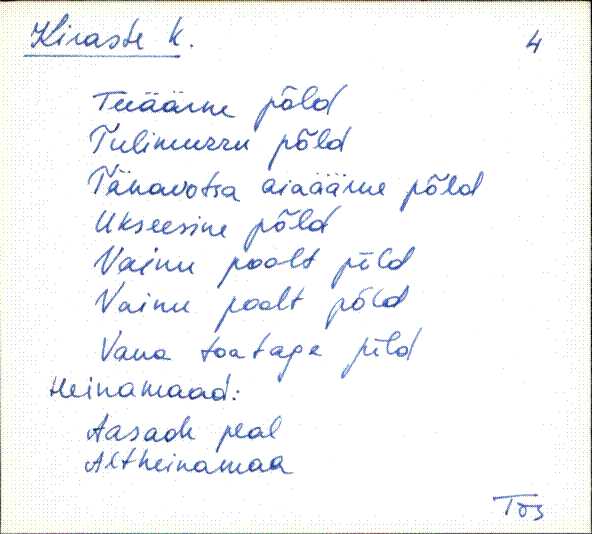 Kiraste k. 4
Teeäärne põld
Tulimurru põld
Tänavotsa aiaäärne põld
Ukseesine põld
Vainu poolt põld
Vainu poolt põld
Vana toataga põld
Heinamaad:
Aasade peal
Altheinamaa
Tõs